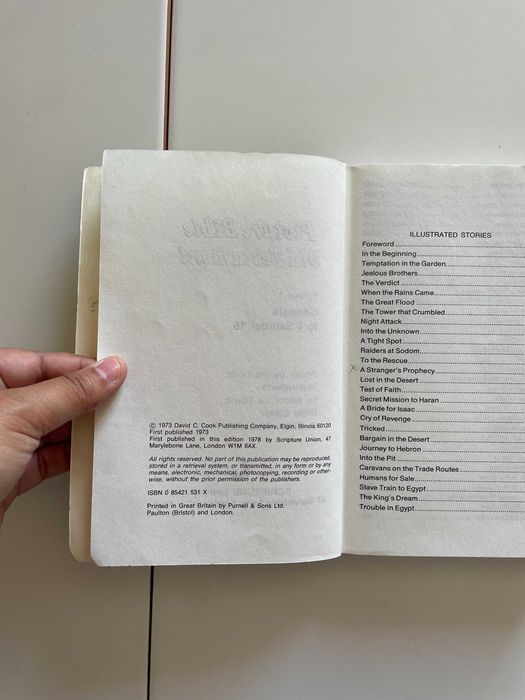 © 1973 David C. Cook Publishing Company, Elgin, Illinois 60120
First published 1973
First published in this edition 1978 by Scripture Union, 47
Marylebone Lane, London W1M 6AX.
All rights reserved. No part of this publication may be reproduced,
stored in a retrieval system, or transmitted, in any form or by any
means, electronic, mechanical, photocopying, recording or other-
wise, without the prior permission of the publishers.
ISBN 0 85421 531 X
Printed in Great Britain by Purnell & Sons Ltd.
Paulton (Bristol) and London.
ILLUSTRATED STORIES
Foreword
In the Beginning
Temptation in the Garden
Jealous Brothers
The Verdict
When the Rains Came
The Great Flood
The Tower that Crumbled
Night Attack
Into the Unknown
A Tight Spot
Raiders at Sodom
To the Rescue
A Stranger's Prophecy
Lost in the Desert
Test of Faith
Secret Mission to Haran
A Bride for Isaac
Cry of Revenge
Tricked
Bargain in the Desert
Journey to Hebron
Into the Pit
Caravans on the Trade Routes
Humans for Sale
Slave Train to Egypt
The King's Dream
Trouble in Egypt